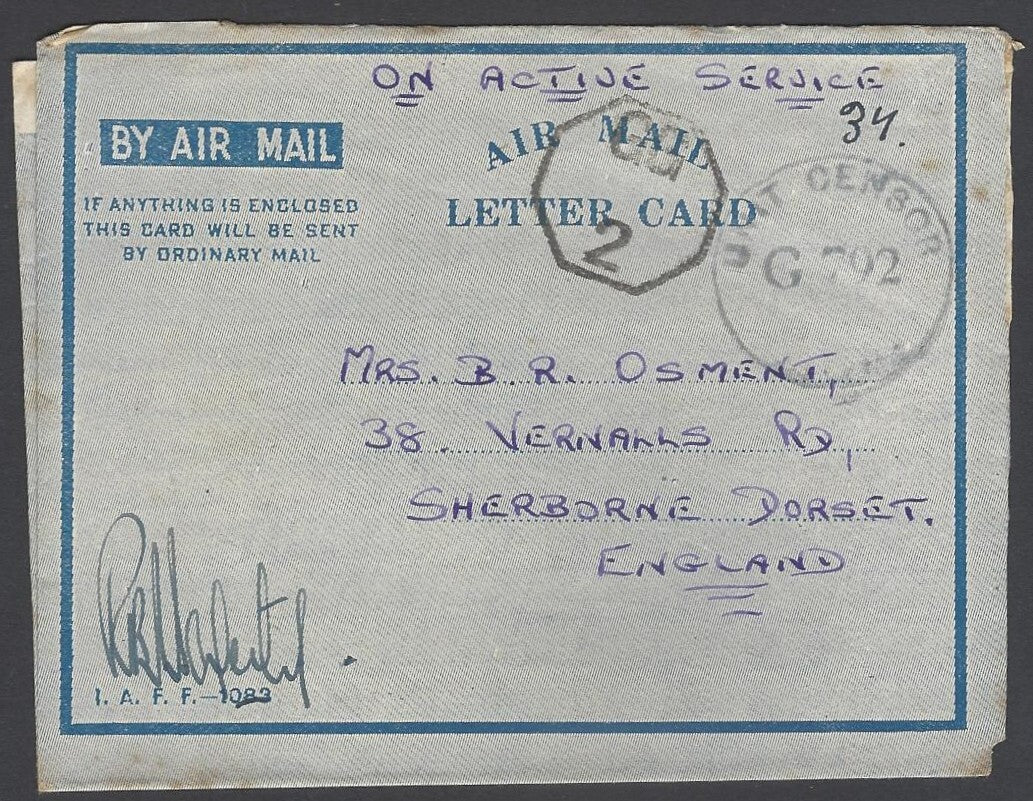 ON ACTIVE SERVICE
34.
BY AIR MAIL
AIR MAIL
LETTER CARD
IF ANYTHING IS ENCLOSED
THIS CARD WILL BE SENT
BY ORDINARY MAIL
2
UNIT CENSOR
G 702
MRS. B. R. OSMENT,
38. VERNALLS RD,
SHERBORNE DORSET.
ENGLAND
I. A. F. F.—1083